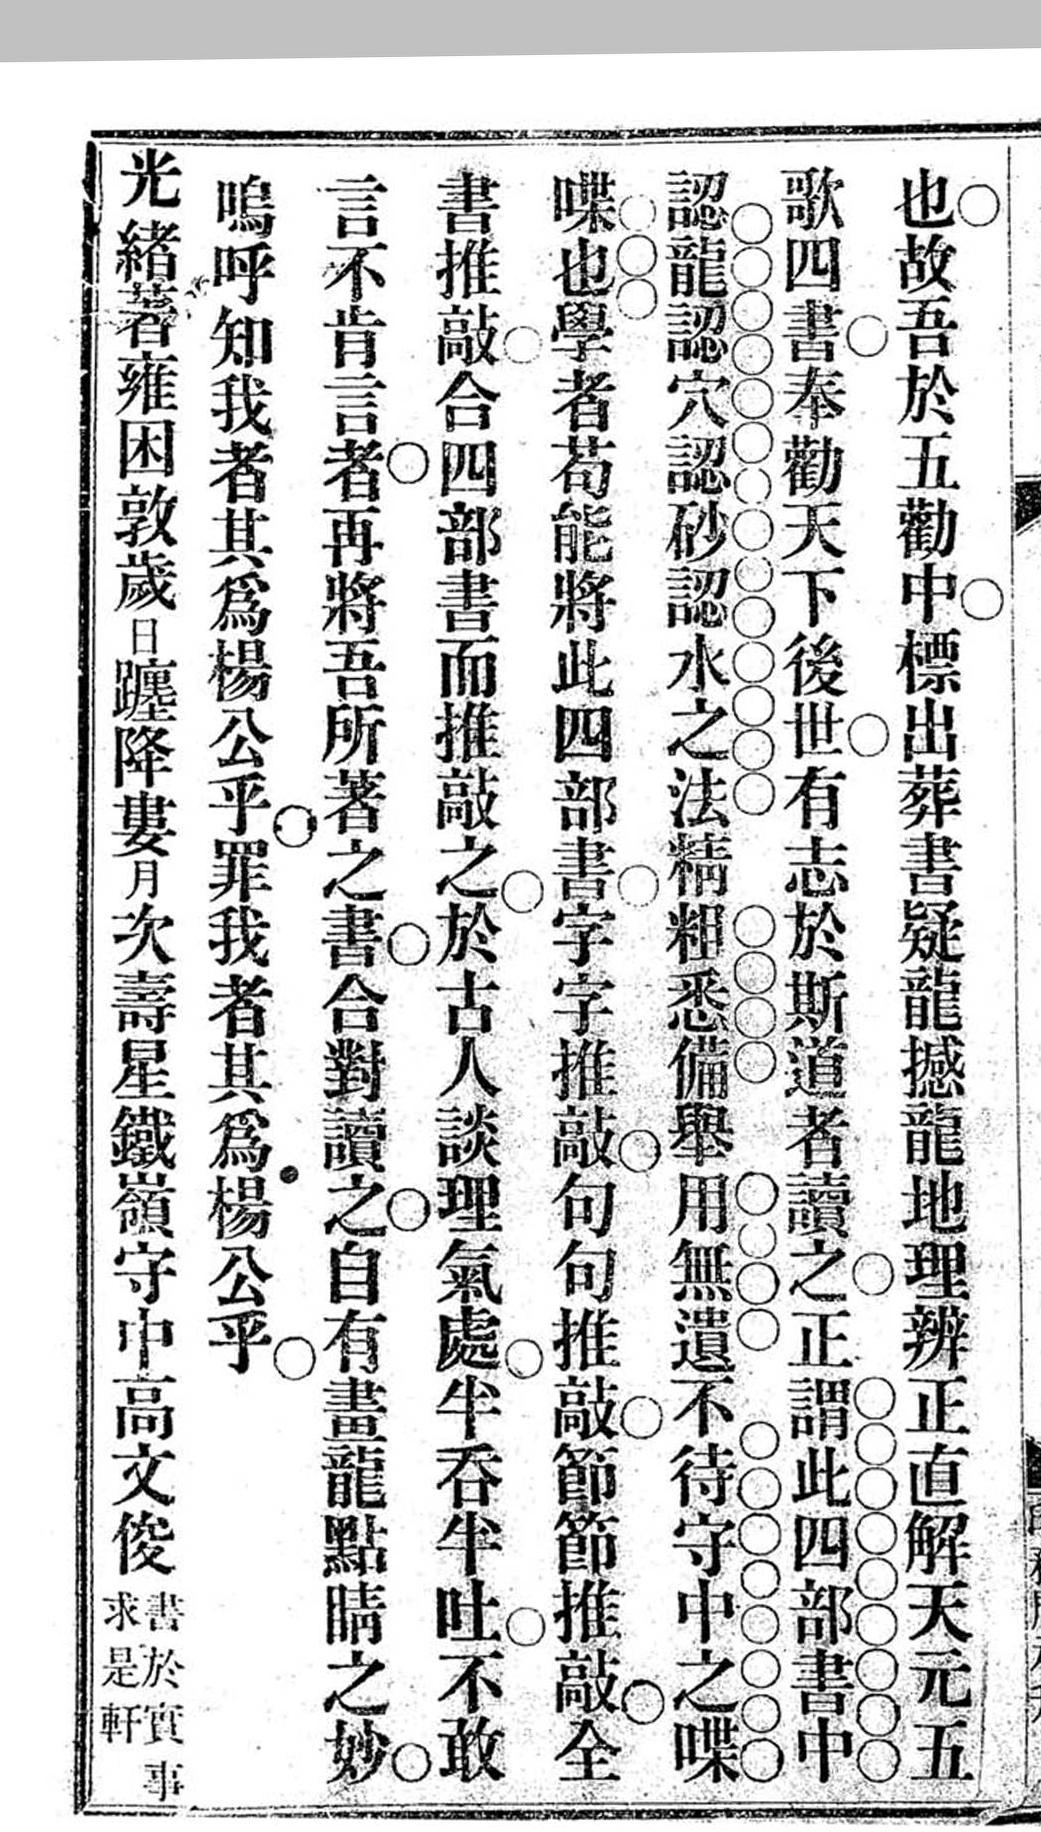 也故吾於五勸中標出葬書疑龍撼龍地理辨正直解天元五
歌四書奉勸天下後世有志於斯道者讀之正謂此四部書中
認龍認穴認砂認水之法精粗悉備舉用無遺不待守中之喋
喋也學者苟能將此四部書字字推敲句句推敲節節推敲全
書推敲合四部書而推敲之於古人談理氣處半吞半吐不敢
言不肯言者再將吾所著之書合對讀之自有畫龍點睛之妙
嗚呼知我者其爲楊公乎罪我者其爲楊公乎
光緒著雍困敦歲日躔降婁月次壽星鐵嶺守中高文俊書於實事
求是軒